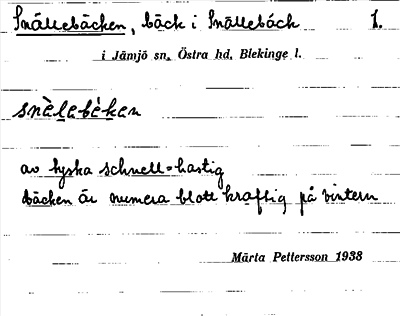 Snällebäcken, bäck i Snällebäck 1.
i Jämjö sn, Östra hd, Blekinge l.
snèlebèkan
av tyska schnell = hastig
bäcken är numera blott kraftig på vintern
Märta Pettersson 1938